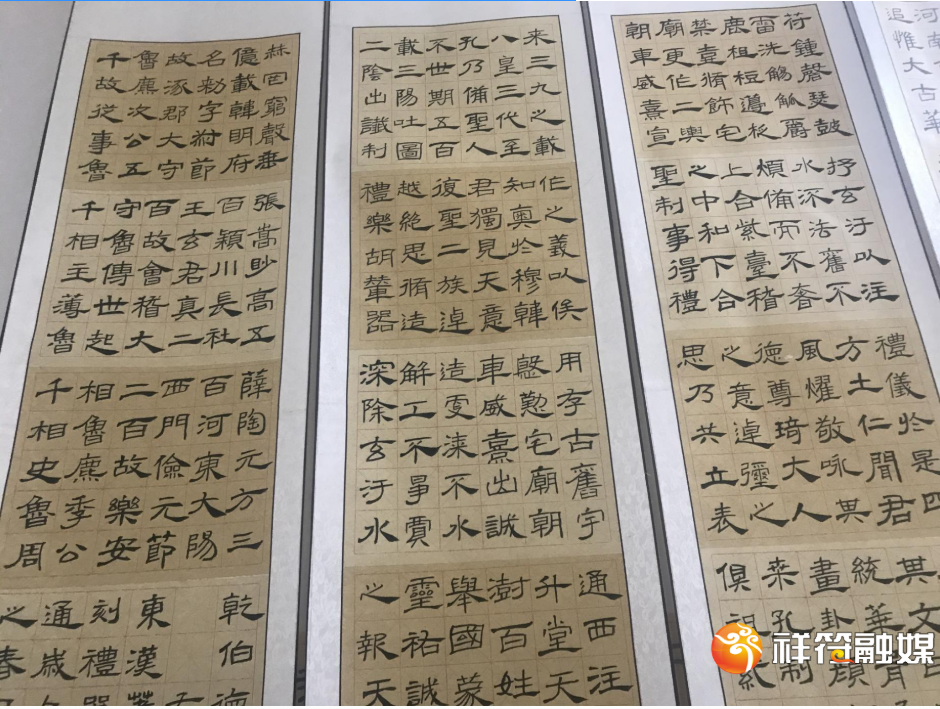 追惟大古華
符鍾磬瑟鼓
雷洗觴觚爵
鹿柤梪籩柉
禁壺脩飾宅
廟更作二輿
朝車威熹宣
抒玄汙以注
水流法舊不
煩備而不奢
上合紫臺稽
之中和下合
聖制事得禮
禮儀於是四
方土仁聞君
風燿敬咏其
德尊琦大人
之意逴彌之
思乃共立表
其文
統華胥
畫卦顏
桒孔制
俱祖紀
來三九之載
八皇三代至
孔乃備聖人
不世期五百
載三陽吐圖
二陰出讖制
作之義以俟
知奧於穆韓
君獨見天意
復聖二族逴
越絕思脩造
禮樂胡輦器
用存古舊宇
慇懃宅廟朝
車威熹出誠
造更漆不水
解工不爭賈
深除玄汙水
通西注
升堂天
澍百姓
舉國蒙
靈祐誠
之報天
赫罔窮聲垂
億載韓明府
名勑字叔節
故涿郡大守
魯麃次公五
千故從事魯
張嵩眇高五
百潁川長社
王玄君真二
百故會稽大
守魯傅世起
千相主薄魯
薛陶元方三
百河東大陽
西門儉元節
二百故樂安
相魯麃季公
千相史魯周
乾伯德
東漢
刻禮器
通歲
之春
祥符融媒